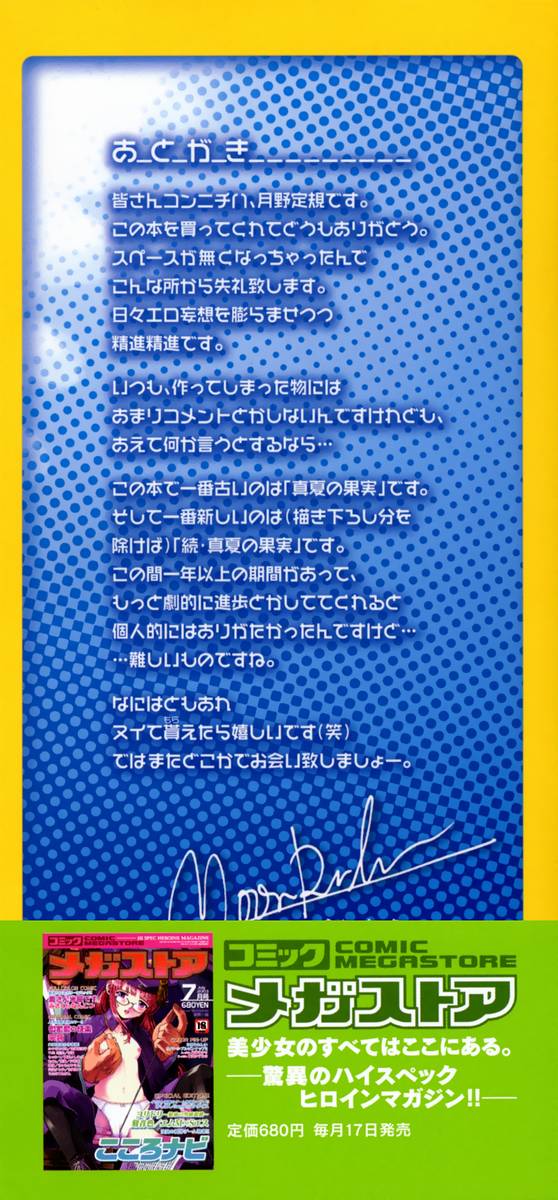 あ_と_が_き_________
皆さんコンニチハ、月野定規です。
この本を買ってくれてどうもありがとう。
スペースが無くなっちゃったんで
こんな所から失礼致します。
日々エロ妄想を膨らませつつ
精進精進です。
いつも、作ってしまった物には
あまりコメントとかしないんですけれども、
あえて何か言うとするなら…
この本で一番古いのは「真夏の果実」です。
そして一番新しいのは(描き下ろし分を
除けば)「続・真夏の果実」です。
この間一年以上の期間があって、
もっと劇的に進歩とかしててくれると
個人的にはありがたかったんですけど…
…難しいものですね。
なにはともあれ
ヌイて貰えたら嬉しいです(笑)
もら
ではまたどこかでお会い致しましょー。
コミック COMIC MEGASTORE
メガストア
美少女のすべてはここにある。
――驚異のハイスペック
ヒロインマガジン!!――
定価680円 毎月17日発売
HI SPEC HEROINE MAGAZINE
コミック COMIC MEGASTORE
メガストア
7月号
680YEN
18
こころナビ